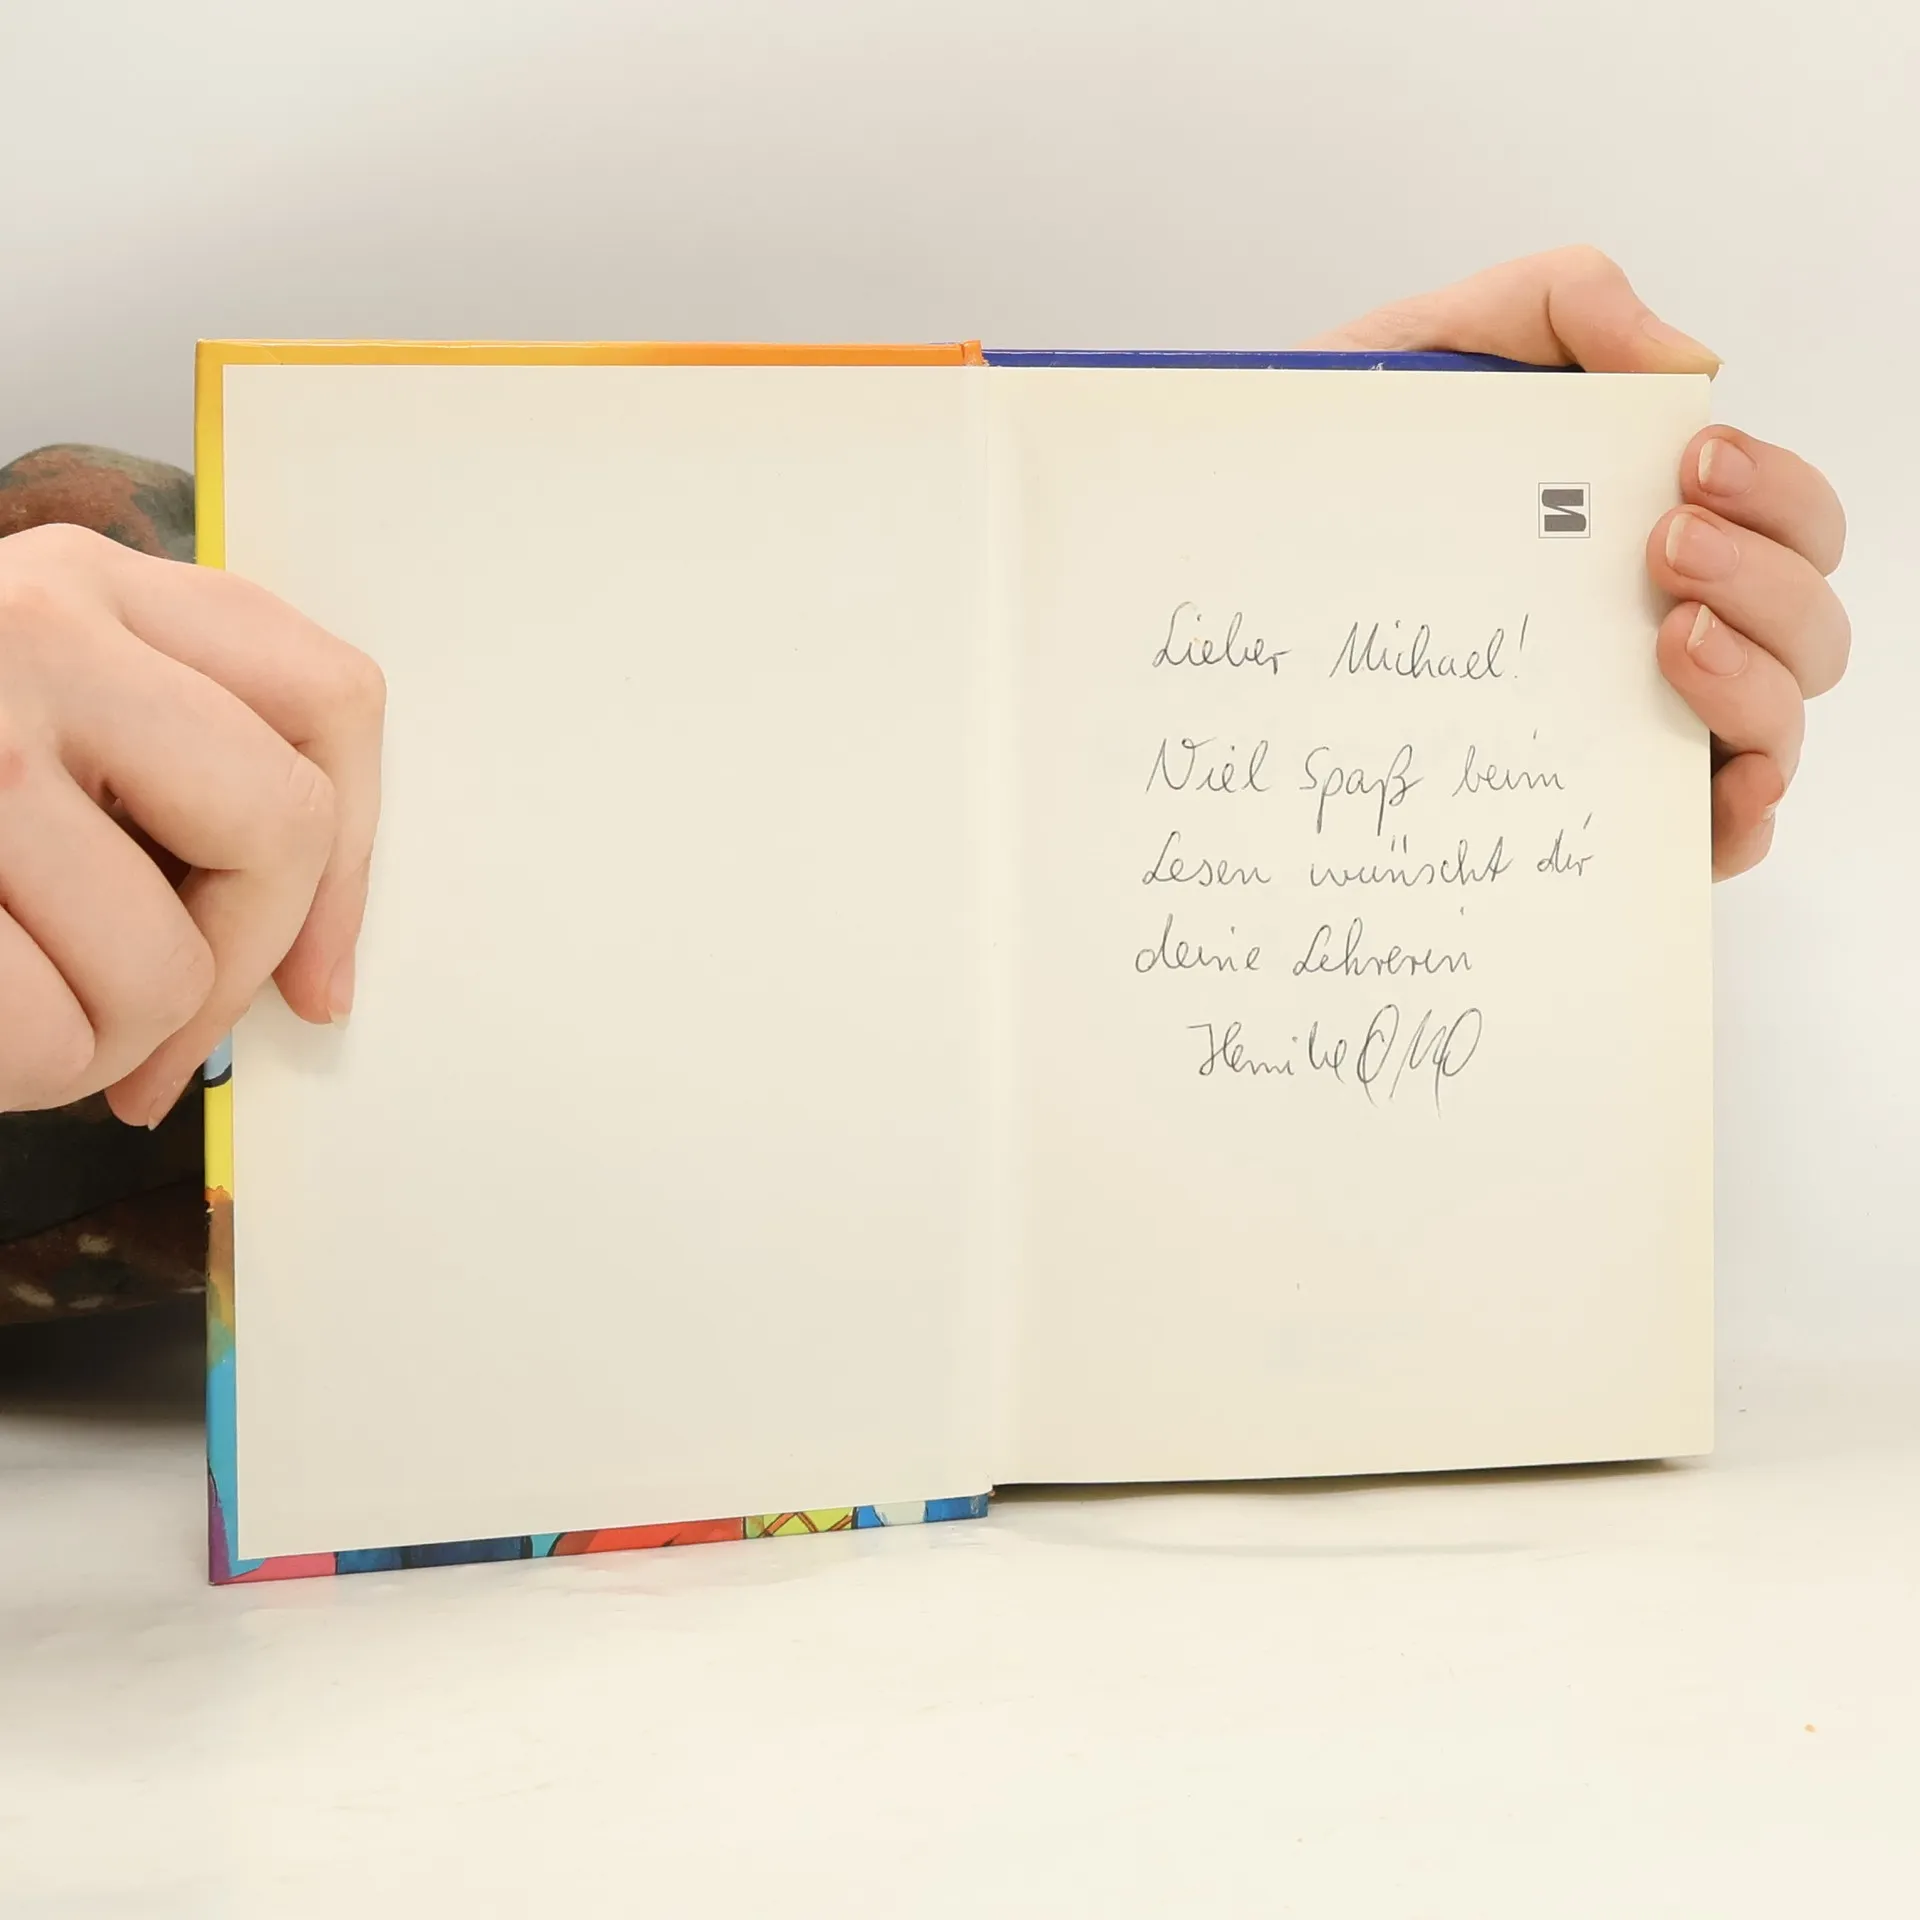 Lieber Michael!
Viel Spaß beim
Lesen wünscht dir
deine Lehrerin